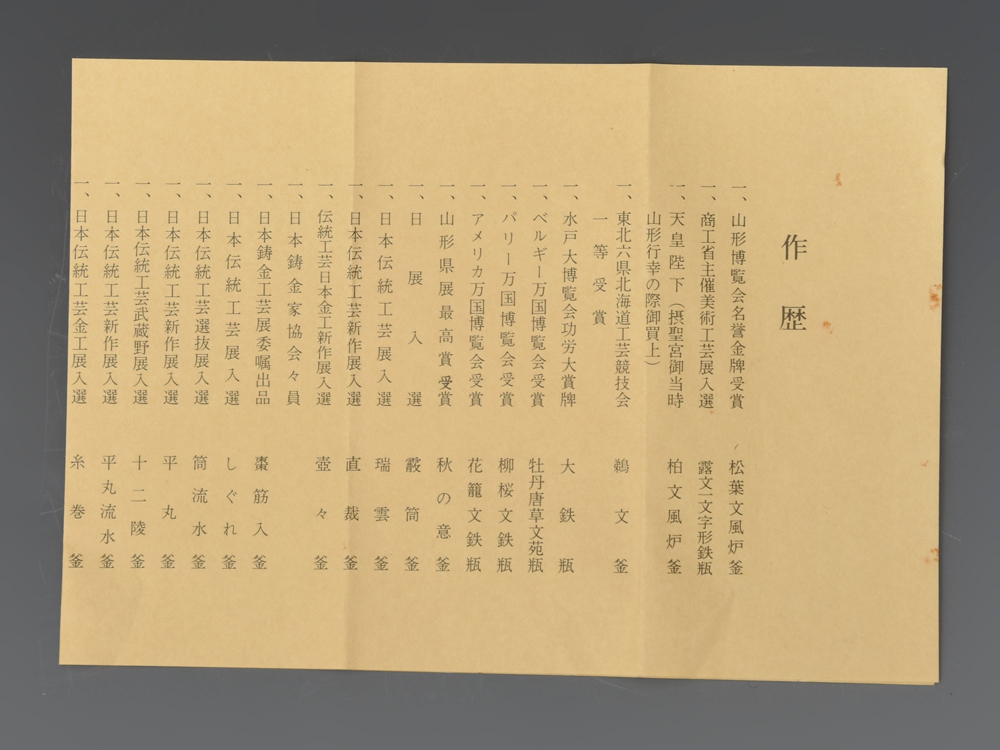 作歴
一、山形博覧会名誉金牌受賞 松葉文風炉釜
一、商工省主催美術工芸展入選 露文一文字形鉄瓶
一、天皇陛下（摂聖宮御当時 柏文風炉釜
山形行幸の際御買上）
一、東北六県北海道工芸競技会 鵜文釜
一等受賞
一、水戸大博覧会功労大賞牌 大鉄瓶
一、ベルギー万国博覧会受賞 牡丹唐草文苑瓶
一、パリー万国博覧会受賞 柳桜文鉄瓶
一、アメリカ万国博覧会受賞 花籠文鉄瓶
一、山形県展最高賞受賞 秋の意釜
一、日展入選 霰筒釜
一、日本伝統工芸展入選 瑞雲釜
一、日本伝統工芸新作展入選 直裁釜
一、伝統工芸日本金工新作展入選 壺々釜
一、日本鋳金家協会々員
一、日本鋳金工芸展委嘱出品 棗筋入釜
一、日本伝統工芸展入選 しぐれ釜
一、日本伝統工芸選抜展入選 筒流水釜
一、日本伝統工芸新作展入選 平丸釜
一、日本伝統工芸武蔵野展入選 十二陵釜
一、日本伝統工芸新作展入選 平丸流水釜
一、日本伝統工芸金工展入選 糸巻釜